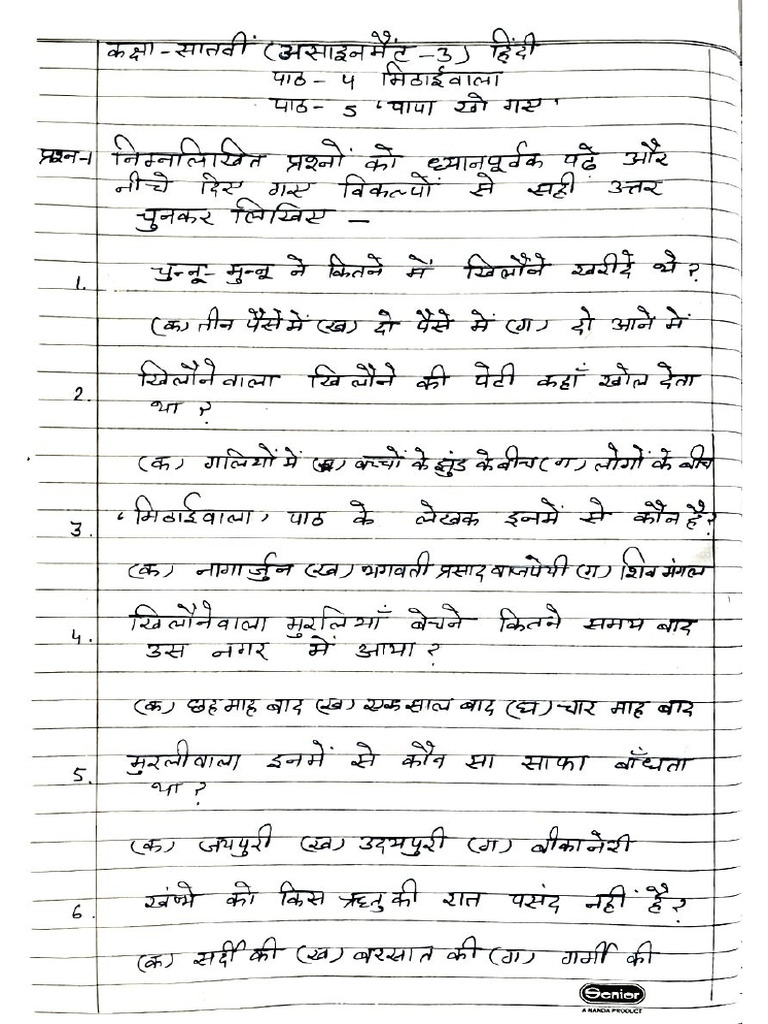 कक्षा - सातवीं (असाइनमैंट - 3) हिंदी
पाठ - 4 मिठाईवाला
पाठ - 5 'पापा खो गस'
प्रश्न-1 निम्नलिखित प्रश्नों को ध्यानपूर्वक पढ़े और
नीचे दिस गस विकल्पों से सही उत्तर
चुनकर लिखिस -
1. चुन्नू - मुन्नू ने कितने में खिलौने खरीदे थे?
(क) तीन पैसे में (ख) दो पैसे में (ग) दो आने में
2. खिलौनेवाला खिलौने की पेटी कहाँ खोल देता
था?
(क) गलियों में (ख) बच्चों के झुंड के बीच (ग) लोगों के बीच
3. 'मिठाईवाला' पाठ के लेखक इनमें से कौन है?
(क) नागार्जुन (ख) भगवती प्रसाद वाजपेयी (ग) शिव मंगल
4. खिलौनेवाला मुरलियाँ बेचने कितने समय बाद
उस नगर में आया?
(क) छह माह बाद (ख) एक साल बाद (घ) चार माह बाद
5. मुरलीवाला इनमें से कौन सा साफा बाँधता
था?
(क) जयपुरी (ख) उदयपुरी (ग) बीकानेरी
6. खंभे को किस ऋतु की रात पसंद नहीं है?
(क) सर्दी की (ख) बरसात की (ग) गर्मी की
Senior
A NANDA PRODUCT